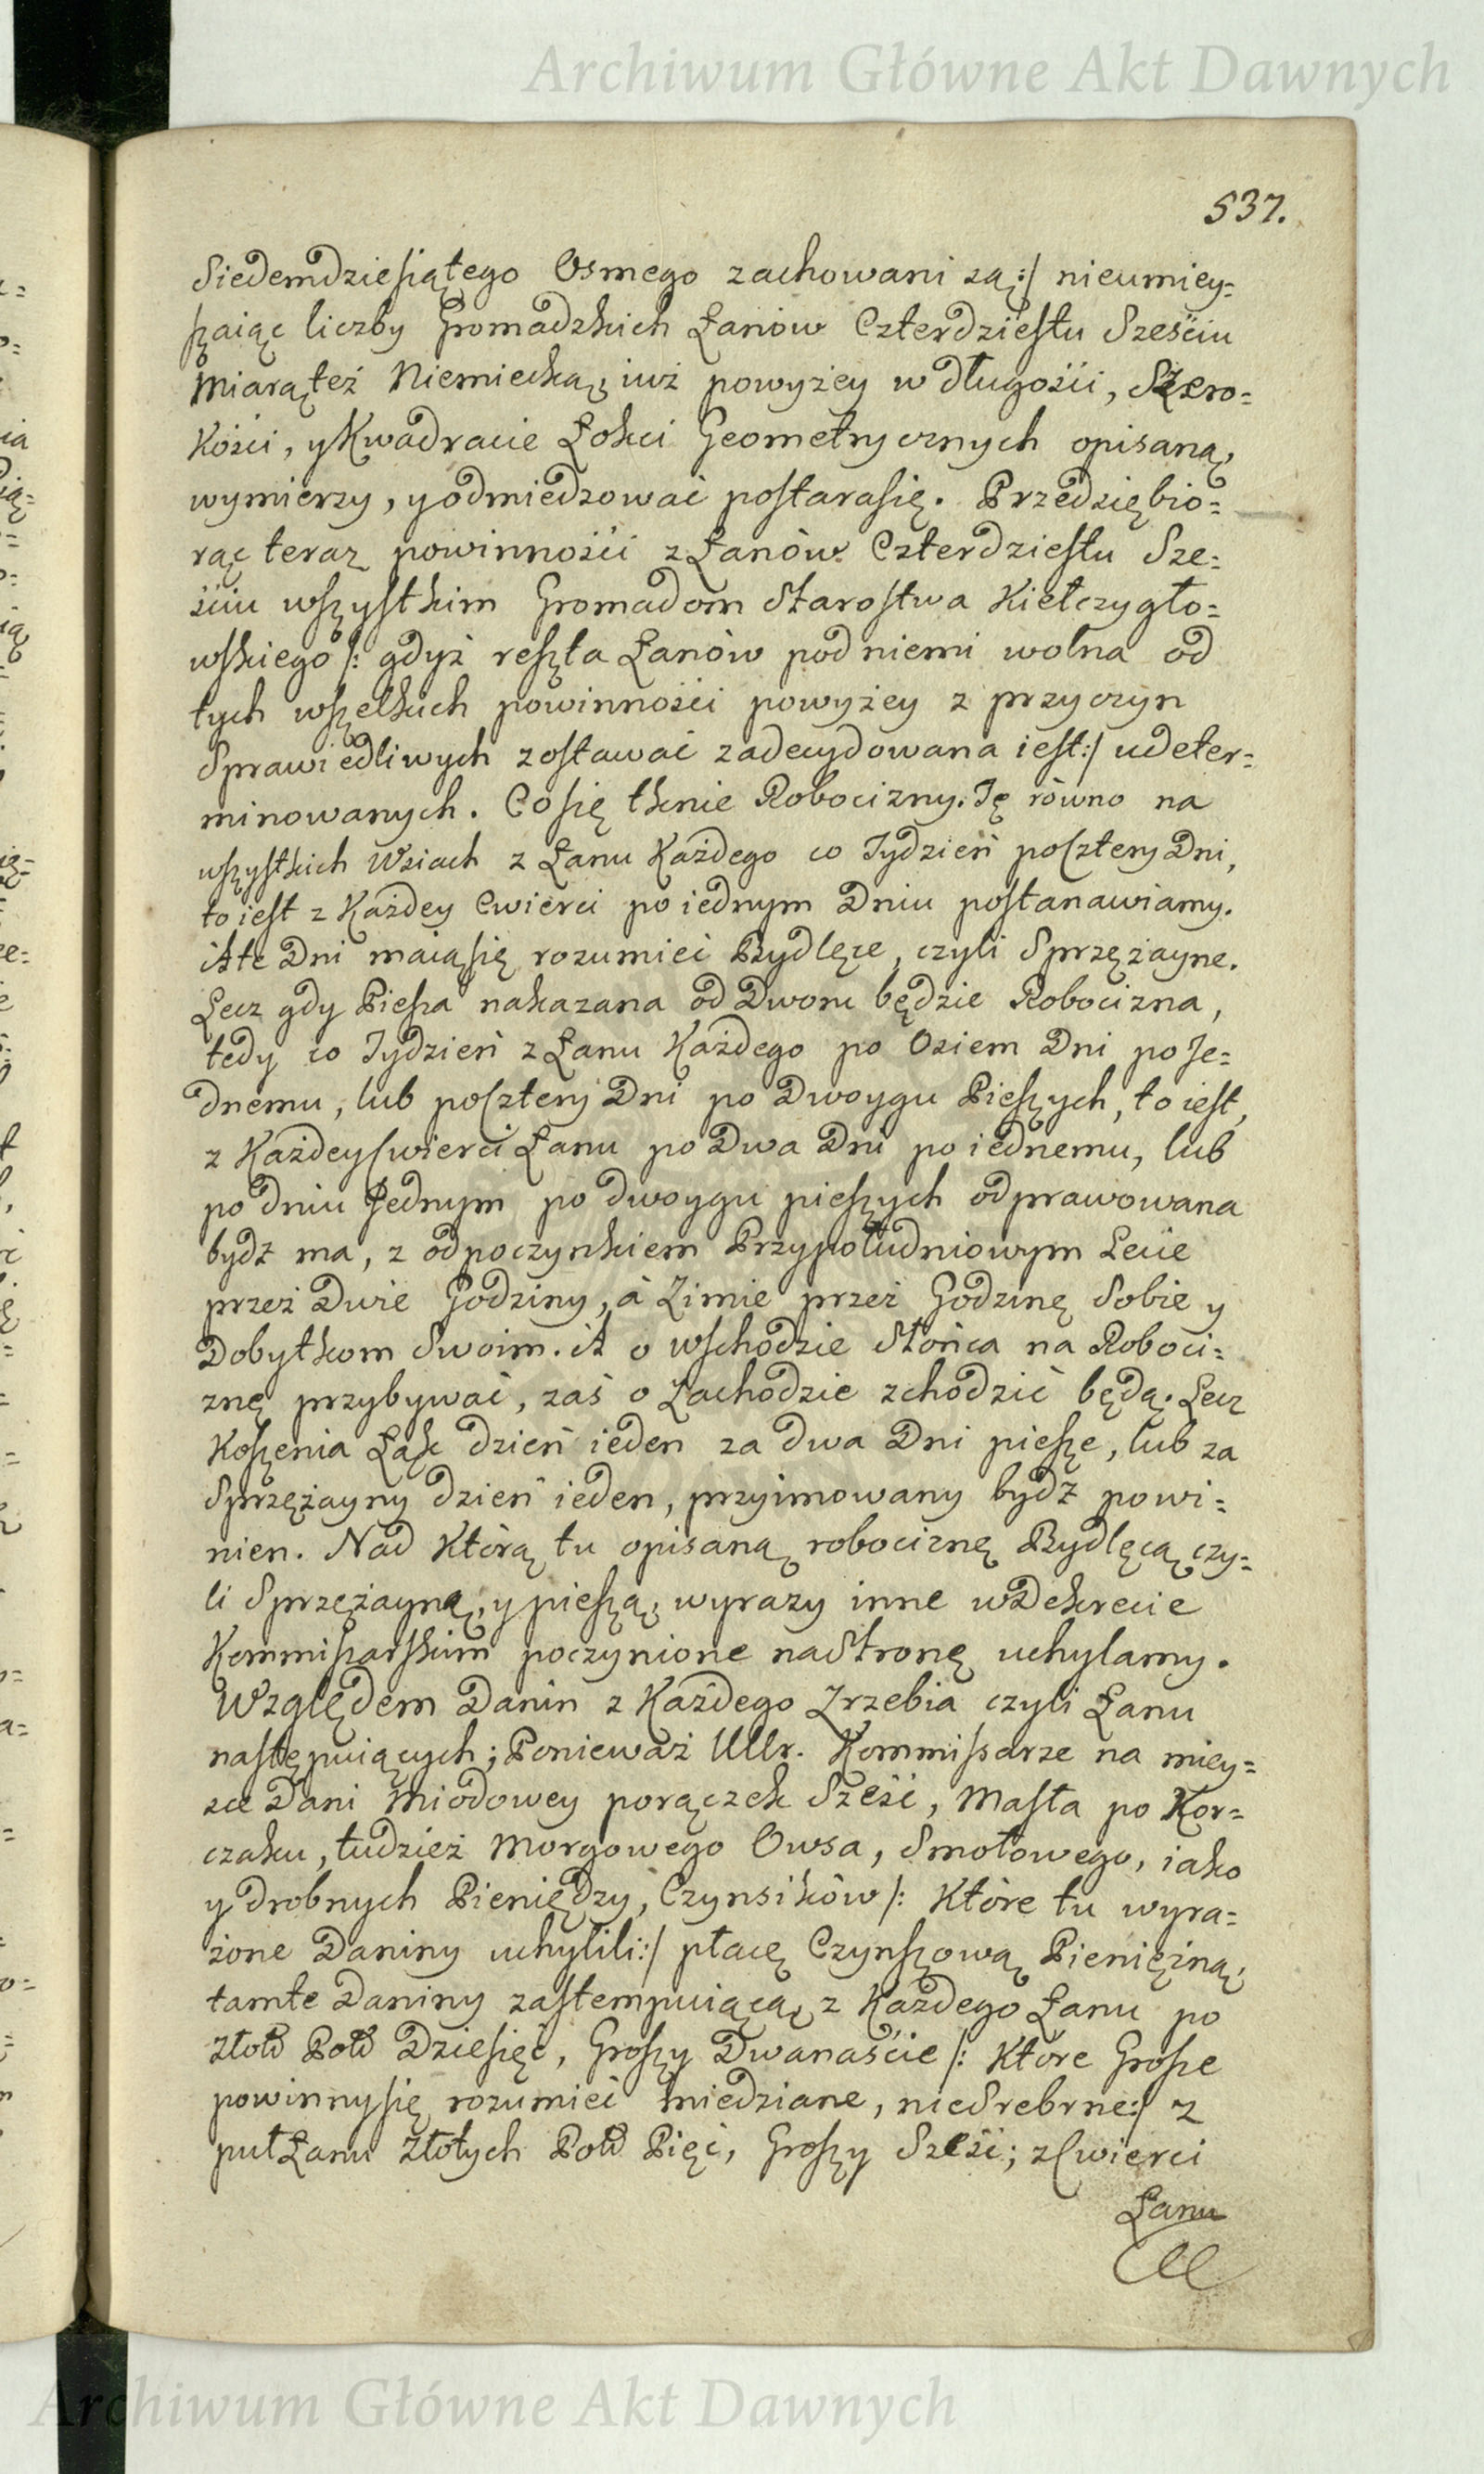 Archiwum Główne Akt Dawnych
537.
Siedemdziesiątego Osmego zachowani są:/ nieumiey=
szaiąc liczby Gromadzkich Łanów Czterdziestu Sześciu
Miarą też Niemiecką, iuż powyżey w długości, Szero=
kości, y Kwadracie Łokci Geometrycznych opisaną,
wymierzy, y odmiedzować postara się. Przedziębio=
rąc teraz powinności z Łanów Czterdziestu Sze=
ściu wszystkim Gromadom Starostwa Kiełczygło=
wskiego /: gdyż reszta Łanów pod niemi wolna od
tych wszelkich powinności powyżey z przyczyn
Sprawiedliwych zostawać zadecydowana iest:/ udeter=
minowanych. Co się tknie Robocizny. Tę równo na
wszystkich Wsiach z Łanu Każdego co Tydzień po Cztery Dni,
to iest z Każdey Cwierci po iednym Dniu postanawiamy.
A te Dni maią się rozumieć Bydlęce, czyli Sprzężayne.
Lecz gdy Piesza nakazana od Dworu będzie Robocizna,
tedy co Tydzień z Łanu Każdego po Osiem Dni po Je=
dnemu, lub po Cztery Dni po Dwoygu Pieszych, to iest,
z Każdey Cwierci Łanu po Dwa Dni po iednemu, lub
po dniu Jednym po dwoygu pieszych odprawowana
bydź ma, z odpoczynkiem Przypołudniowym Lecie
przez Dwie Godziny, à Zimie przez Godzinę Sobie y
Dobytkom Swoim. A o wschodzie Słońca na Roboci=
znę przybywać, zaś o Zachodzie zchodzić będą. Lecz
Koszenia Łąk dzień ieden za dwa Dni piesze, lub za
Sprzężayny dzień ieden, przyimowany bydź powi=
nien. Nad Którą tu opisaną robociznę Bydlęcą czy=
li Sprzężayną, y pieszą, wyrazy inne w Dekrecie
Kommissarskim poczynione na Stronę uchylamy.
Względem Danin z Każdego Zrzebia czyli Łanu
następuiących; Ponieważ Ullr. Kommissarze na miey=
sce Dani Miodowey porączek Sześć, Masła po Kor=
czaku, tudzież Morgowego Owsa, Smołowego, iako
y drobnych Pieniędzy, Czynsików /: Które tu wyra=
żone Daniny uchylili:/ płacę Czynszową Pieniężną,
tamte Daniny zastempuiącą, z Każdego Łanu po
Złott Poll Dziesięć, Groszy Dwanaście /: Które Grosze
powinny się rozumieć miedziane, nie Srebrne:/ z
puł Łanu Złotych Poll Pięć, Groszy Sześć; z Cwierci
Łanu
Archiwum Główne Akt Dawnych